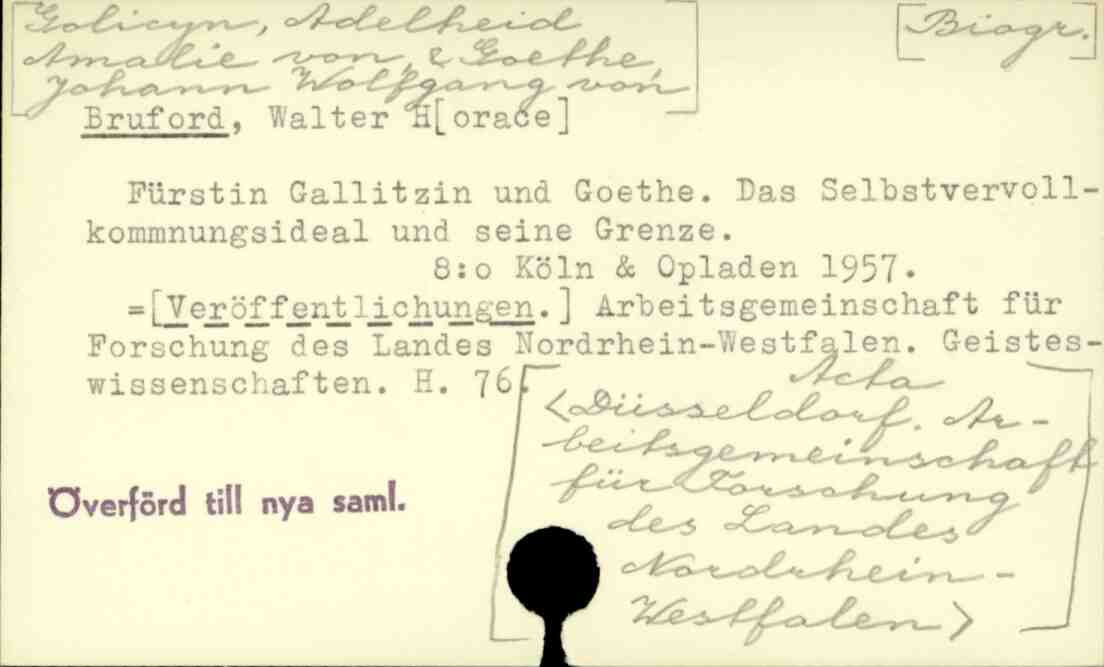 [Golicyn, Adelheid
Amalie von, & Goethe,
Johann Wolfgang von]
[Biogr.]
Bruford, Walter H[orace]
Fürstin Gallitzin und Goethe. Das Selbstvervoll-
kommnungsideal und seine Grenze.
8:o Köln & Opladen 1957.
=[Veröffentlichungen.] Arbeitsgemeinschaft für
Forschung des Landes Nordrhein-Westfalen. Geistes-
wissenschaften. H. 76.
[Acta
<Düsseldorf. Ar-
beitsgemeinschaft
für Forschung
des Landes
Nordrhein-
Westfalen>]
Överförd till nya saml.